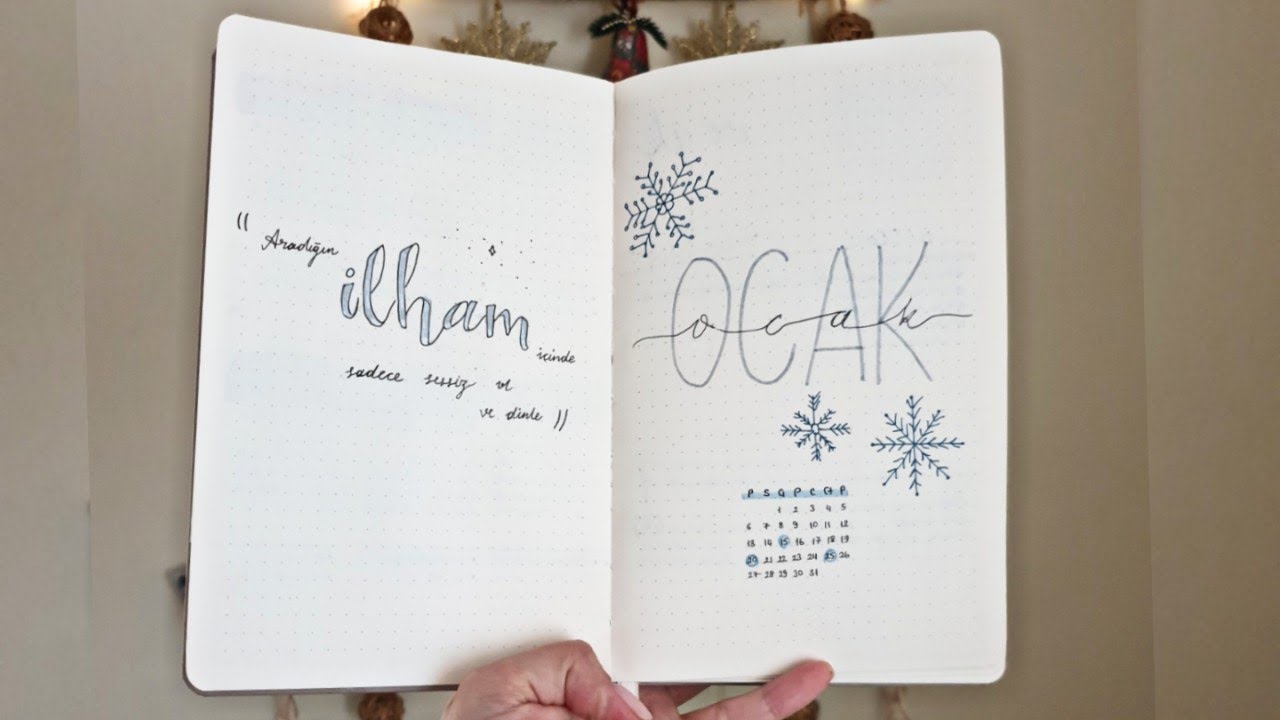 "Aradığın
ilham
içinde
sadece sessiz ol
ve dinle"
OCAK
ocak
P S Ç P C Ct P
1 2 3 4 5
6 7 8 9 10 11 12
13 14 15 16 17 18 19
20 21 22 23 24 25 26
27 28 29 30 31